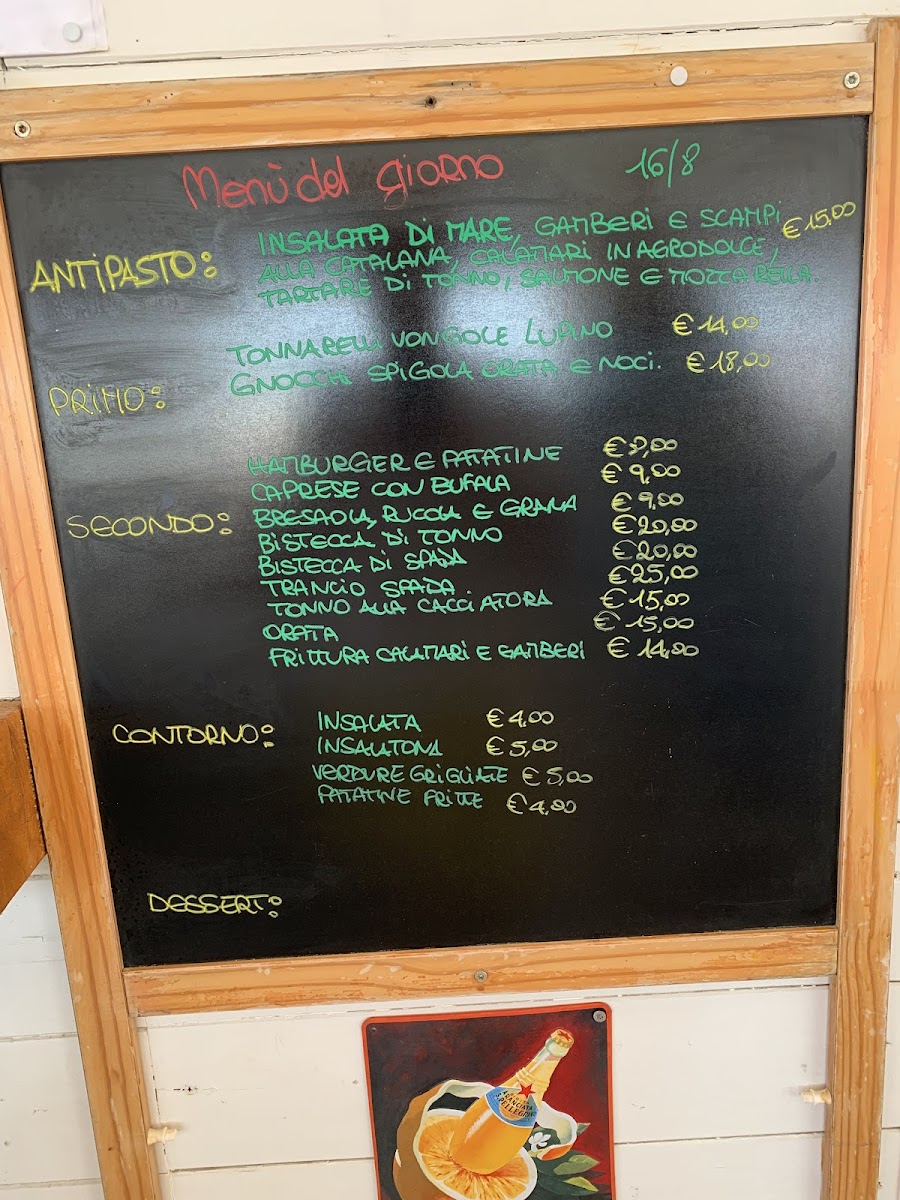 Menù del giorno 16/8
ANTIPASTO: INSALATA DI MARE, GAMBERI E SCAMPI €15,00
ALLA CATALANA, CALAMARI IN AGRODOLCE,
TARTARE DI TONNO, SALMONE E MOZZARELLA.
TONNARELLI VONGOLE LUPINO €14,00
GNOCCHI SPIGOLA ORATA E NOCI. €18,00
PRIMO:
HAMBURGER E PATATINE
CAPRESE CON BUFALA €9,00
SECONDO: BRESAOLA, RUCOLA E GRANA €9,00
BISTECCA DI TONNO €20,00
BISTECCA DI SPADA €20,00
TRANCIO SPADA €25,00
TONNO ALLA CACCIATORA €15,00
ORATA €15,00
FRITTURA CALAMARI E GAMBERI €14,00
CONTORNO: INSALATA €4,00
INSALATONA €5,00
VERDURE GRIGLIATE €5,00
PATATINE FRITTE €4,00
DESSERT:
ARANCIATA
S.PELLEGRINO